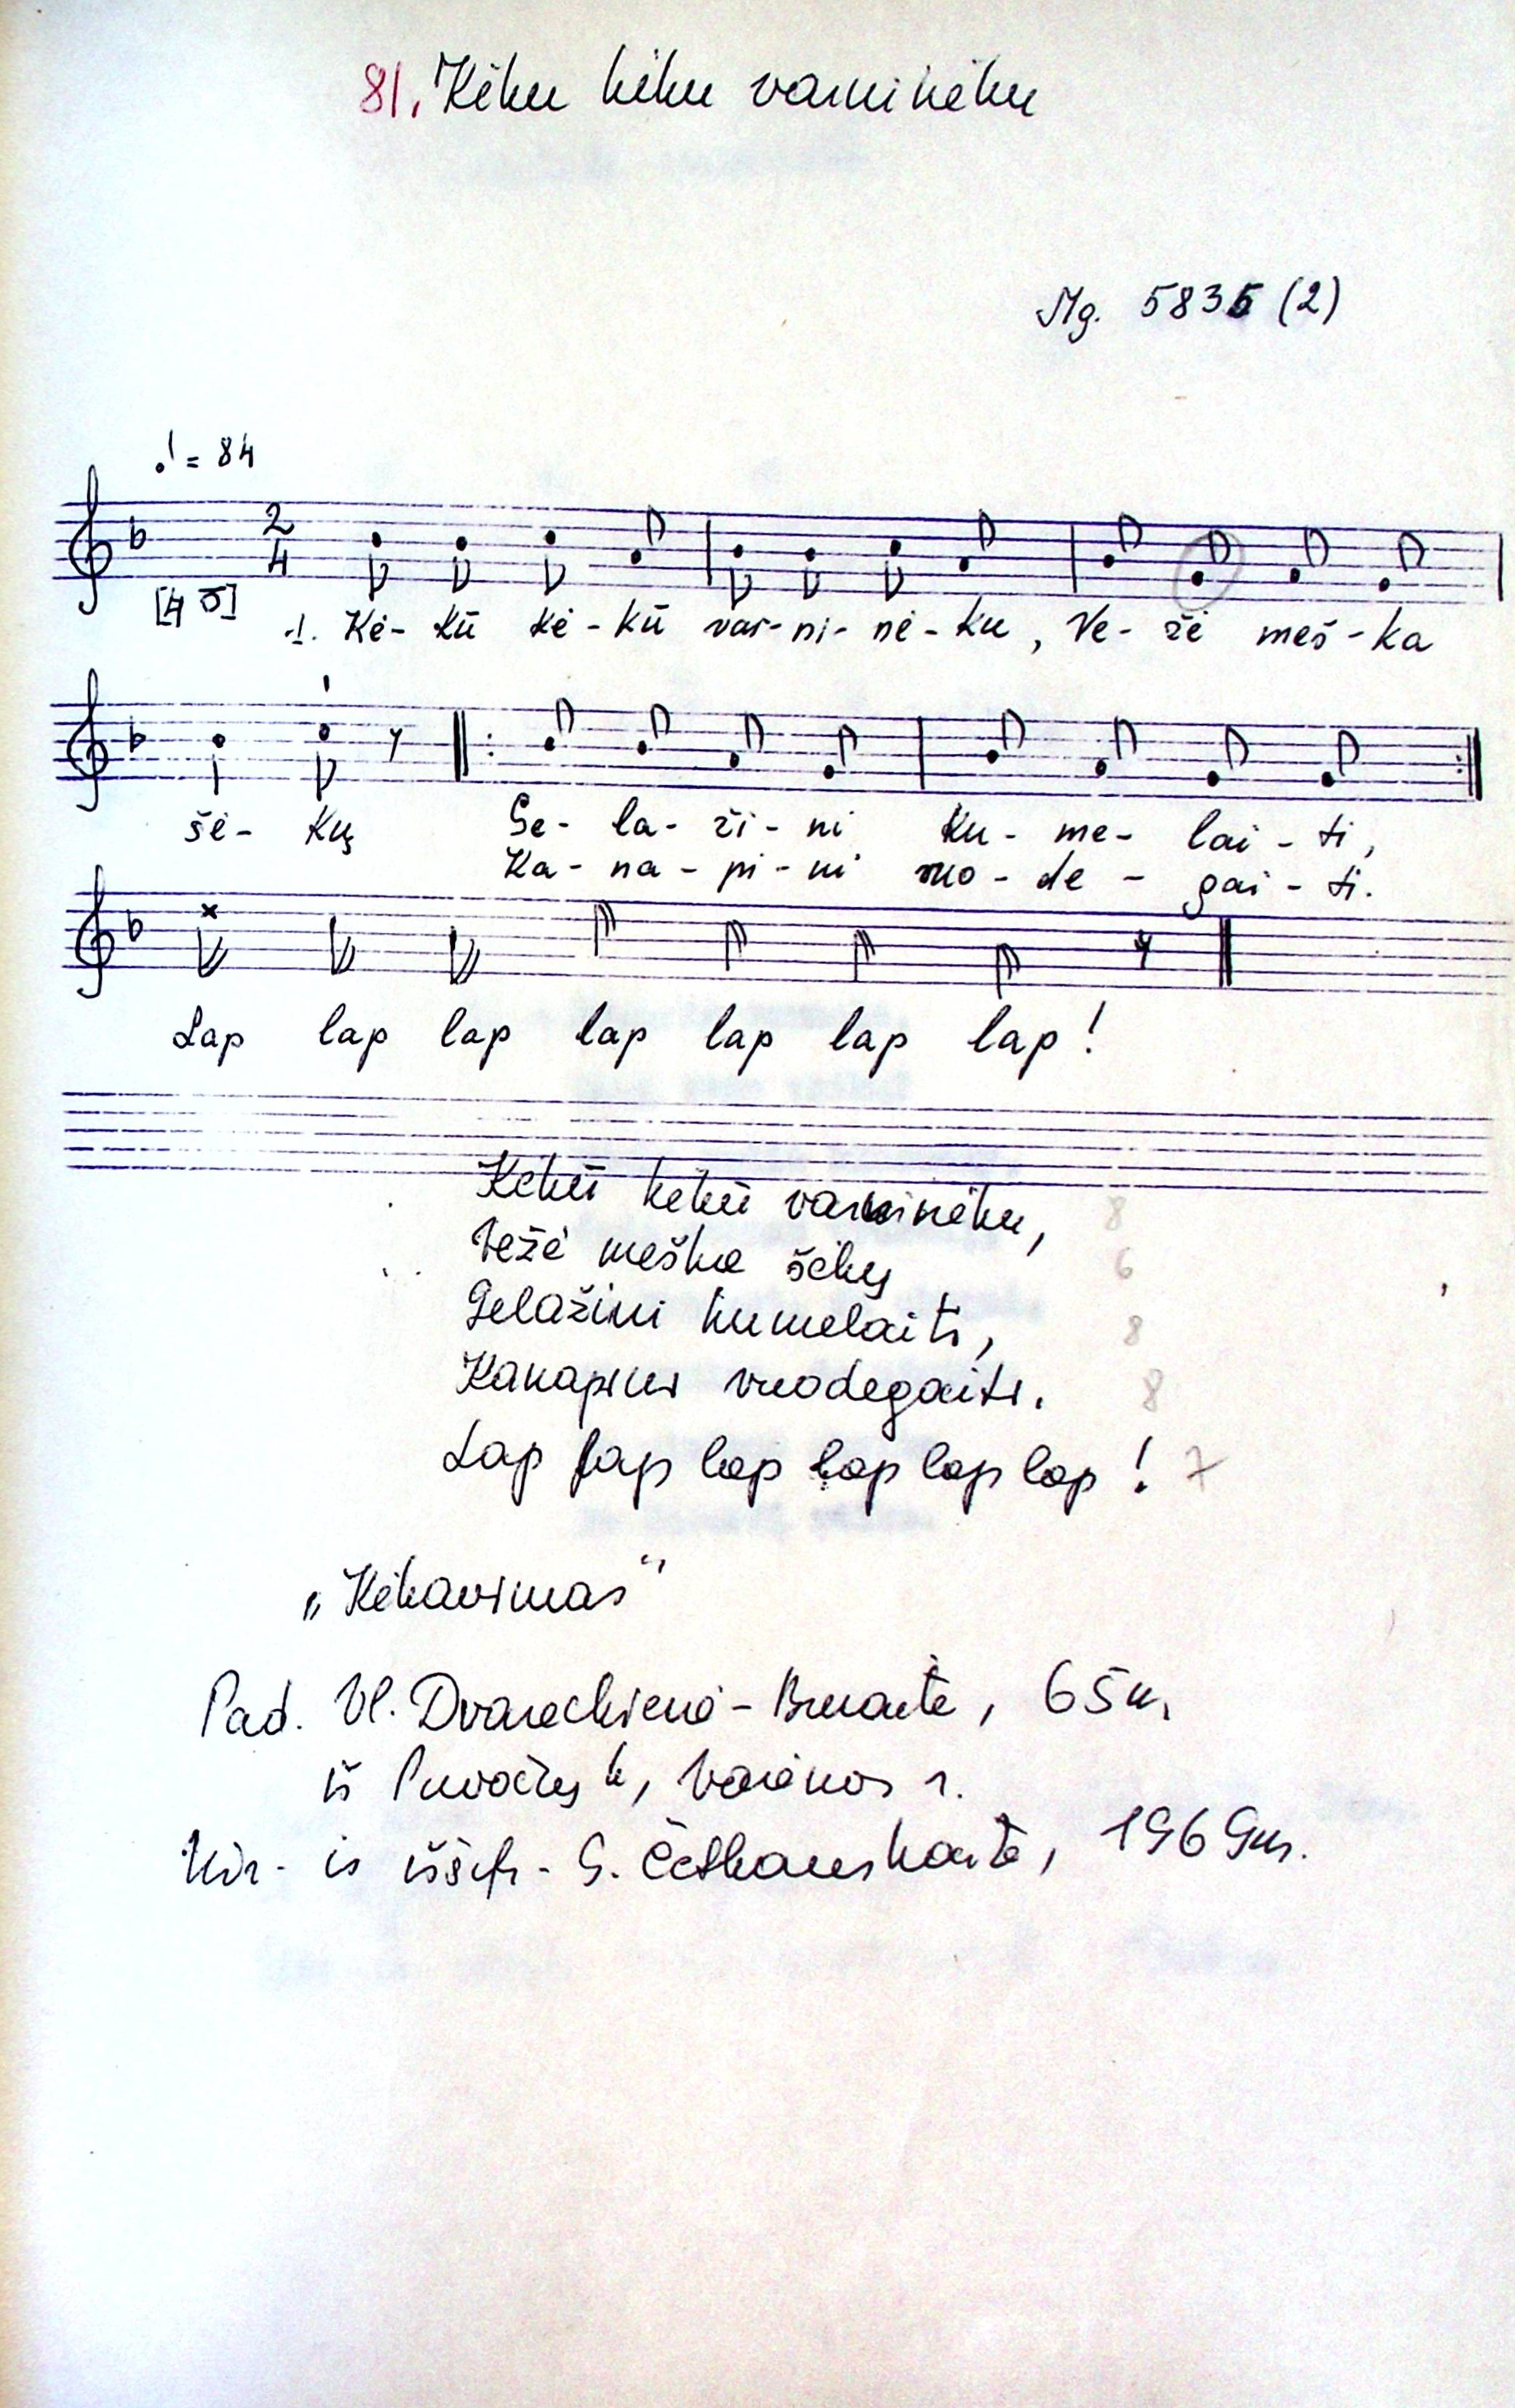 81. Kėku kėku varninėku
Mg. 5835 (2)
♩ = 84
2
4
1. Kė- kū kė - kū var- ni- nė - ku, Ve- žė meš - ka
šė- kų Ge- la- ži - ni ku - me- lai - ti,
Ka - na - pi - ni vuo - de - gai - ti.
Lap lap lap lap lap lap lap!
Kėkū kėkū varninėku, 8
Vežė meška šėkų 6
Gelažini kumelaiti, 8
Kanapini vuodegaiti. 8
Lap lap lap lap lap lap! 7
„Kėkavimas“
Pad. Vl. Dvareckienė - , 65 m.
iš Puvočių k, Varėnos r.
ir iššifr. G. Četkauskaitė, 1969 m.